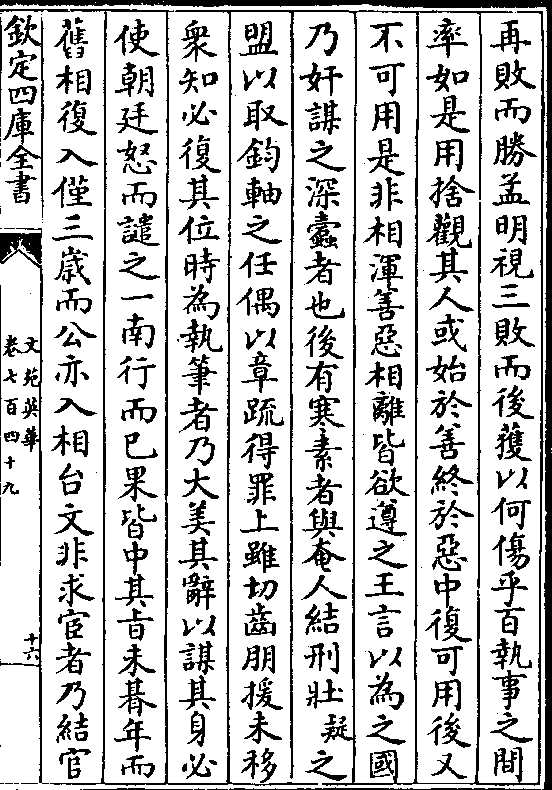 再敗而勝孟明視三敗而後獲以何傷乎百執事之間
率如是用捨觀其人或始於善終於惡中復可用後又
不可用是非相渾善惡相離皆欲遵之王言以為之國
乃奸謀之深蠹者也後有寒素者與奄人結刑壯疑之
盟以取鈞軸之任偶以章疏得罪上雖切齒朋援未移
衆知必復其位時為執筆者乃大美其辭以謀其身必
使朝廷怒而譴之一南行而已果皆中其旨未朞年而
舊相復入僅三歲而公亦入相台文非求宦者乃結官
欽定四庫全書
文苑英華
卷七百四十九
十六